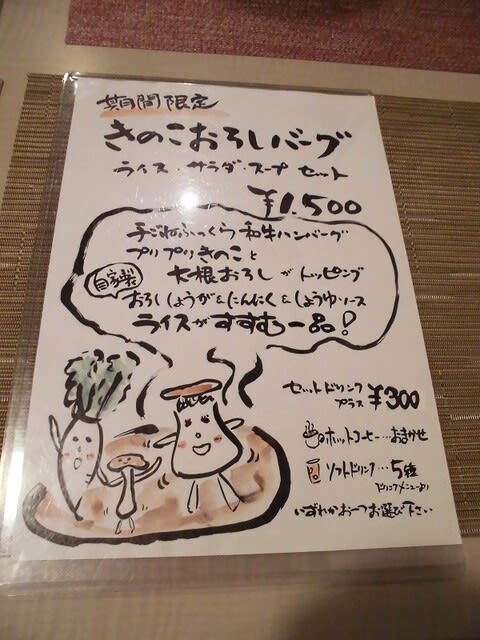 期間限定
きのこおろしバーグ
ライス・サラダ・スープ セット
¥1,500
手ごねふっくら和牛ハンバーグ
プリプリきのこと
大根おろしがトッピング
自家製
おろししょうが&にんにく&しょうゆソース
ライスがすすむ一品!
セットドリンク
プラス ¥300
ホットコーヒー…おまかせ
ソフトドリンク…5種
ドリンクメニューより
いずれかお一つお選び下さい